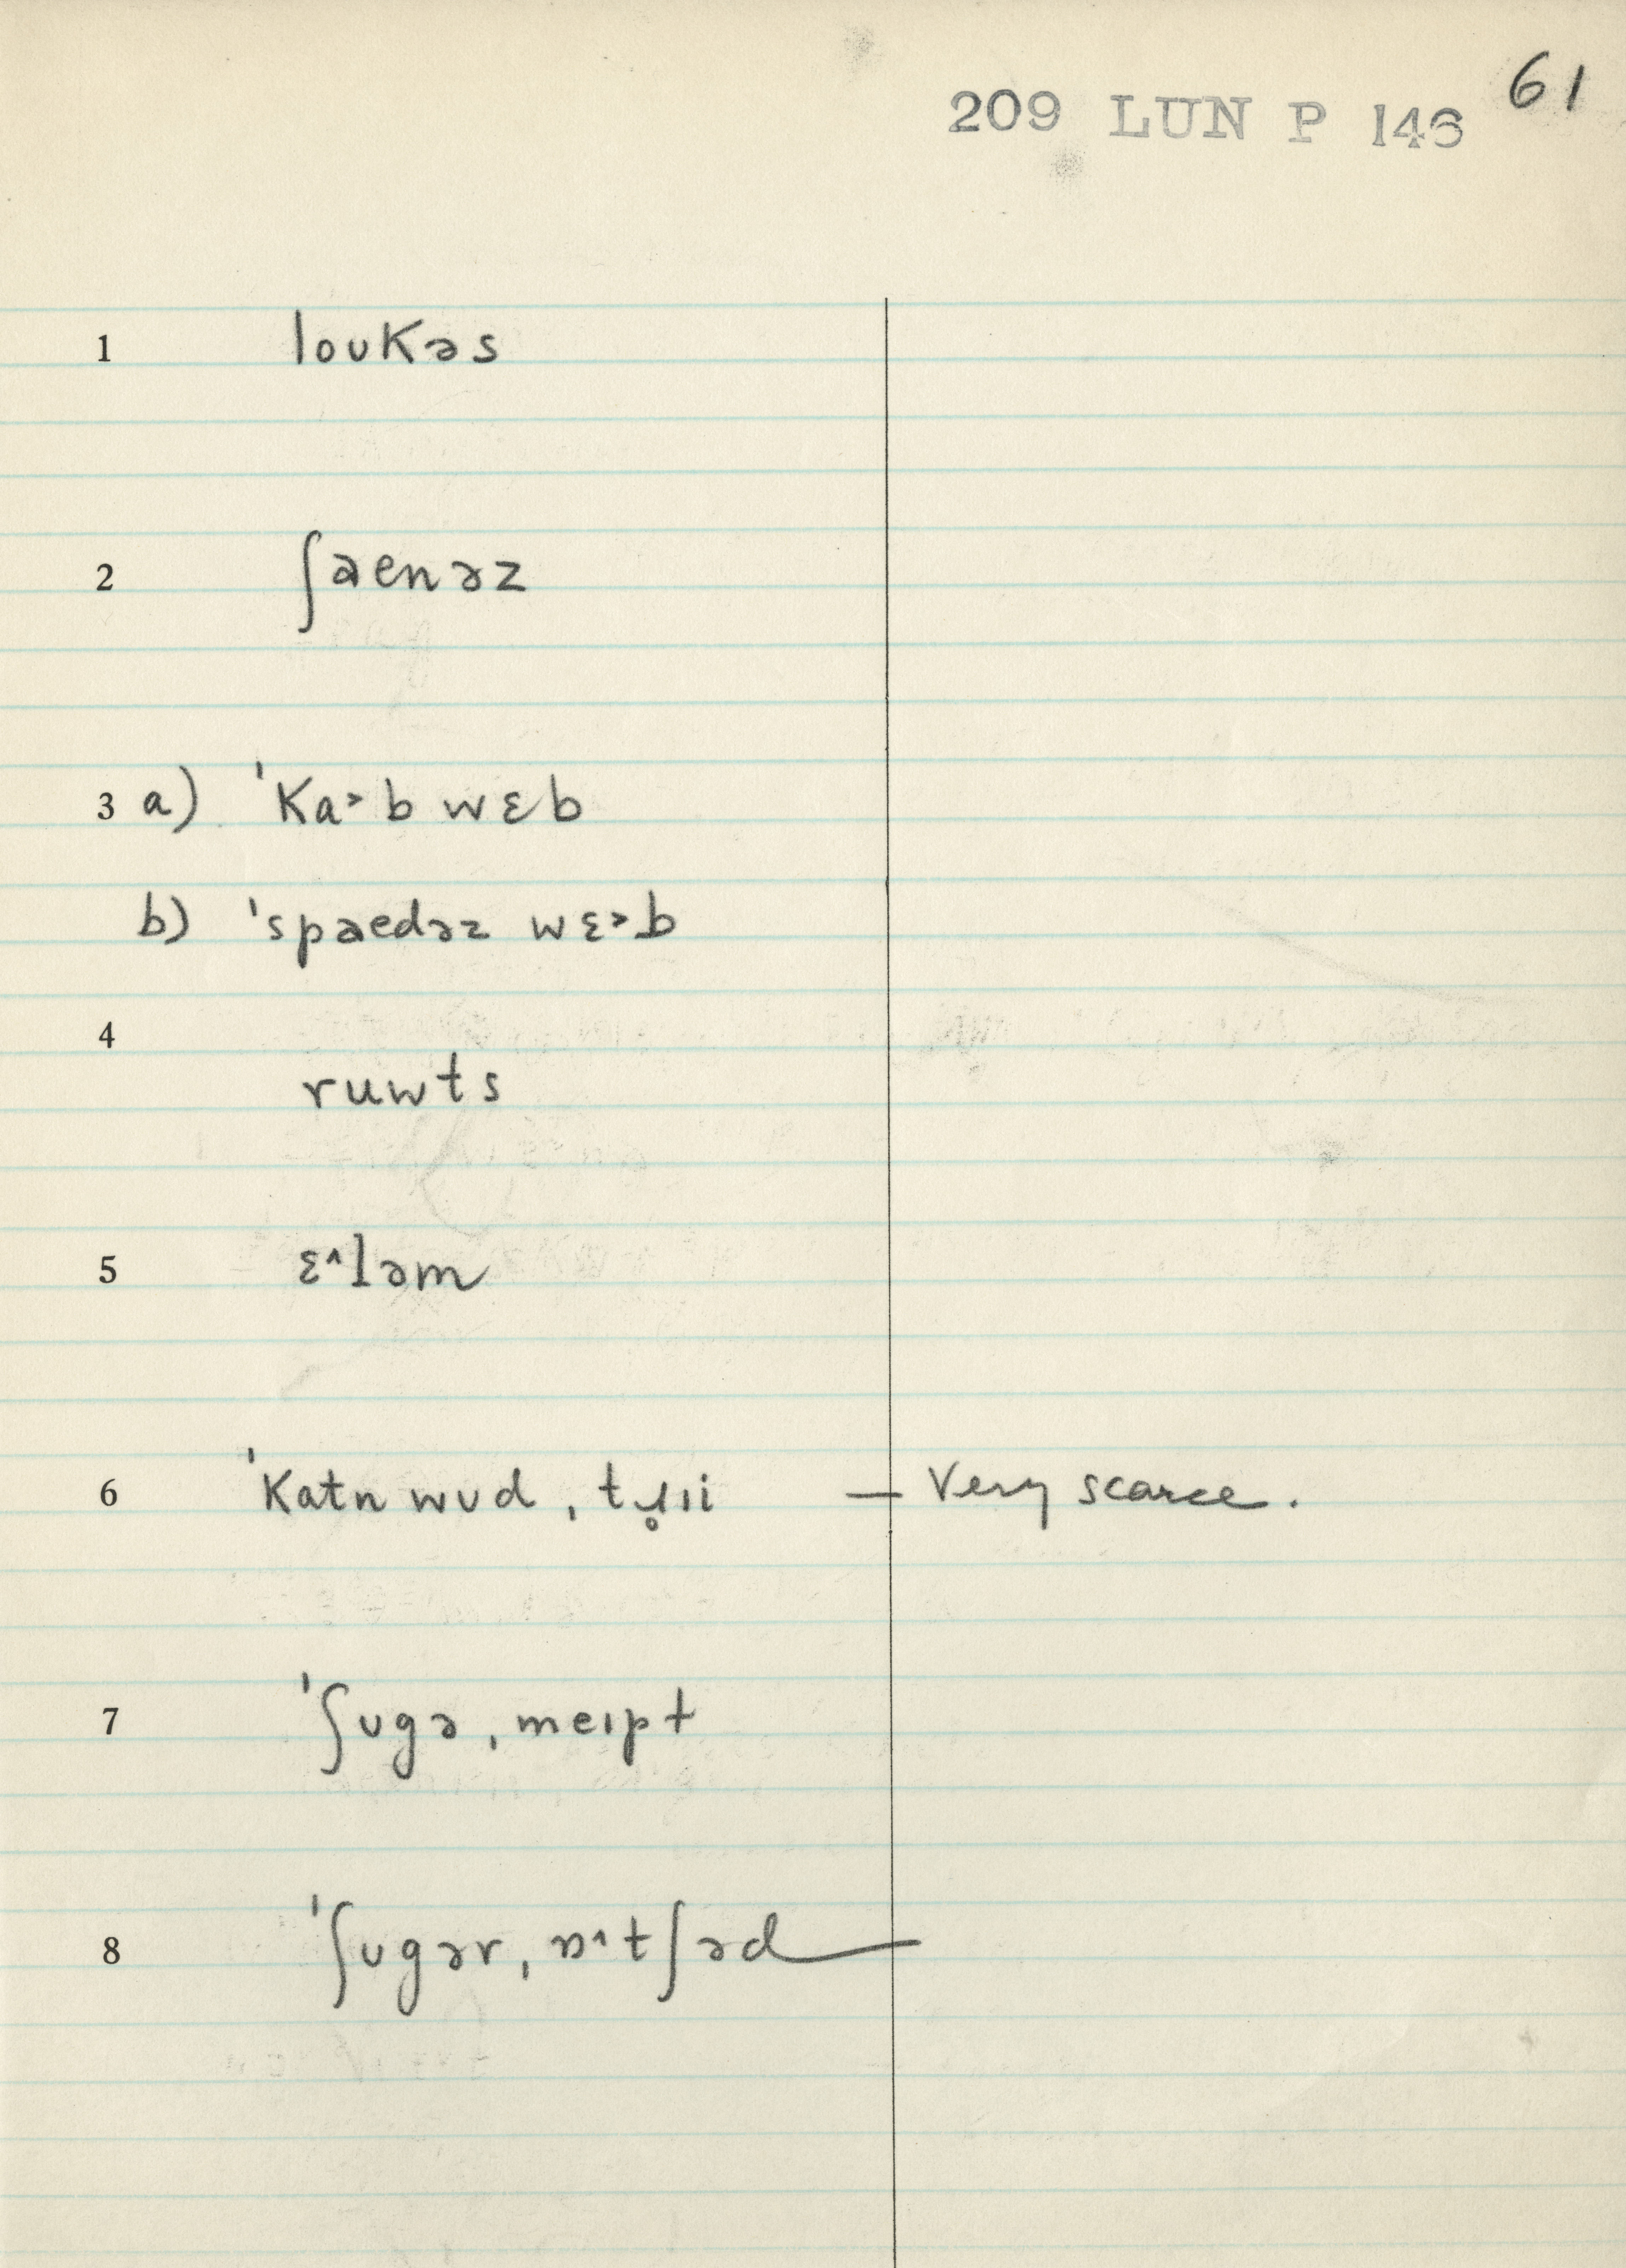 61
209 LUN P 146
1 loʊkəs
2 ʃaenəz
3 a) ˈka˃b wɛb
b) ˈspaedəz wɛ˃b
4
ruwts
5 ɛ^ləm
6 ˈkatn wʊd, tɹ̥ɪi — Very scarce.
7 ˈʃʊgə, meɪpt
8 ˈʃʊgər, ɒ^tʃəd —